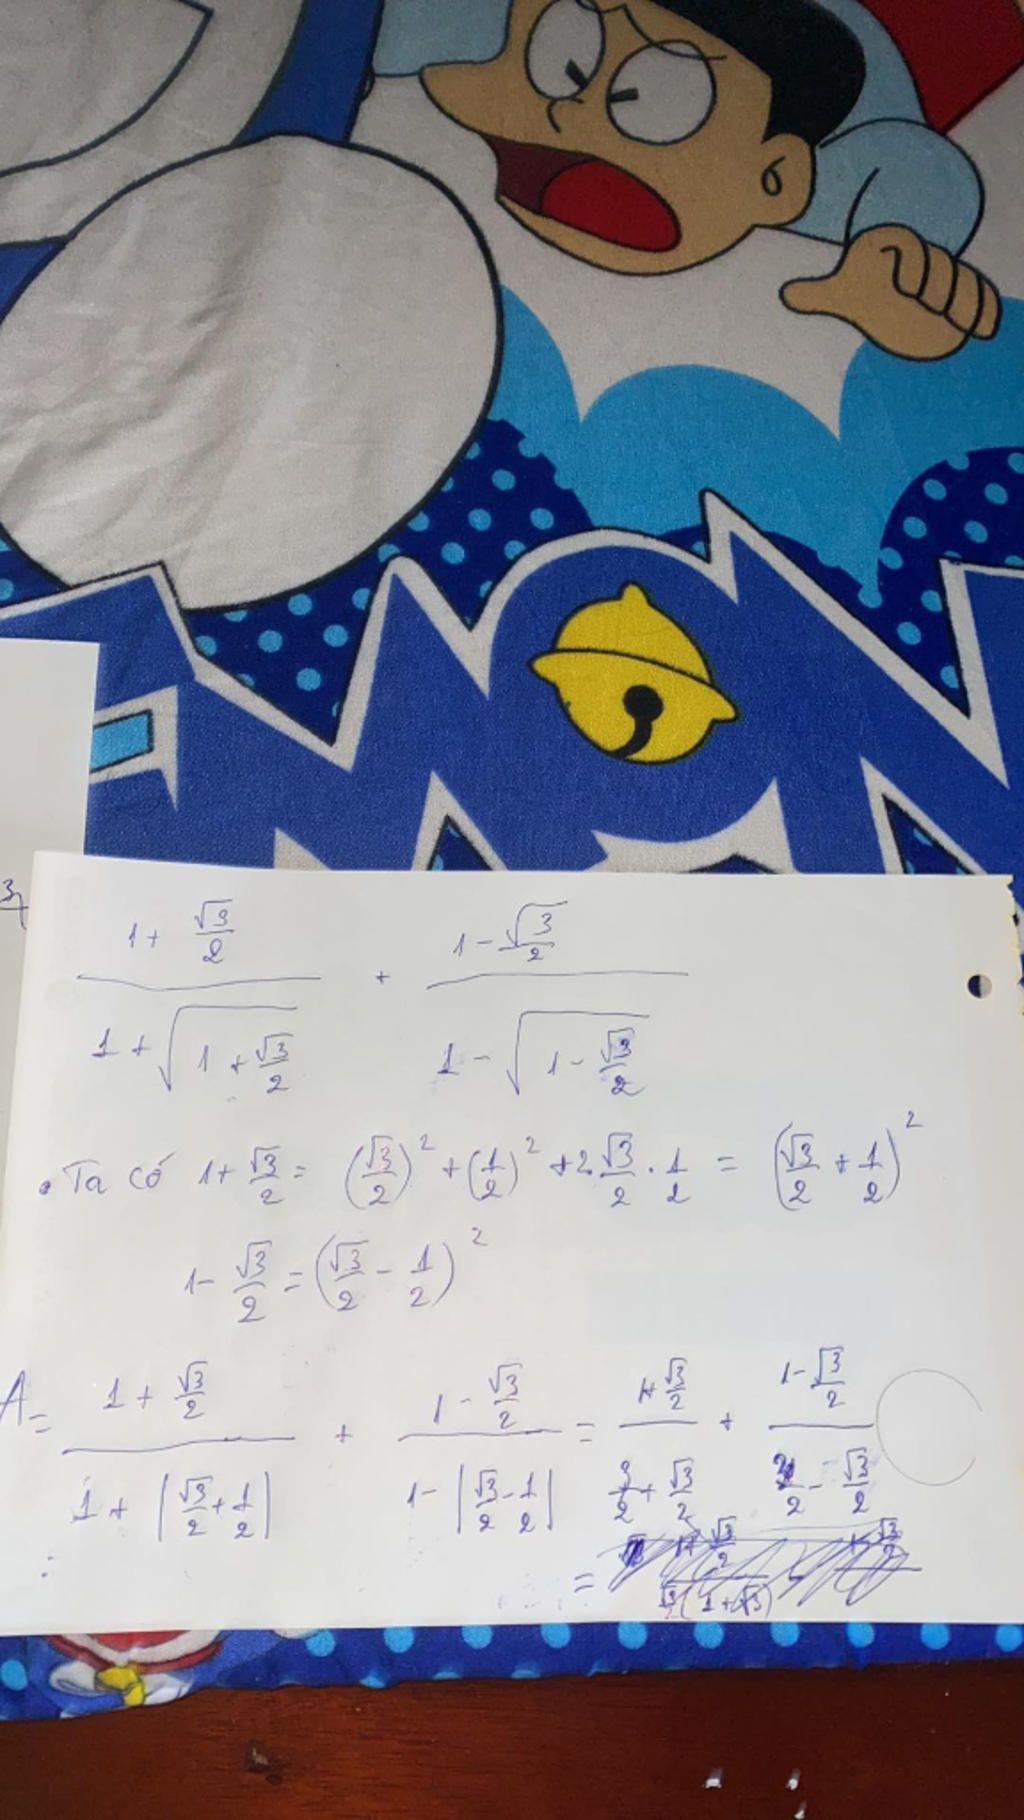 MON
3
(1 + √3/2)/(1 + √(1 + √3/2)) + (1 - √3/2)/(1 - √(1 - √3/2))
. Ta có 1 + √3/2 = (√3/2)² + (1/2)² + 2.√3/2 . 1/2 = (√3/2 + 1/2)²
1 - √3/2 = (√3/2 - 1/2)²
A = (1 + √3/2)/(1 + |√3/2 + 1/2|) + (1 - √3/2)/(1 - |√3/2 - 1/2|) = (1+ √3/2)/(3/2 + √3/2) + (1 - √3/2)/(3/2 - √3/2)
=